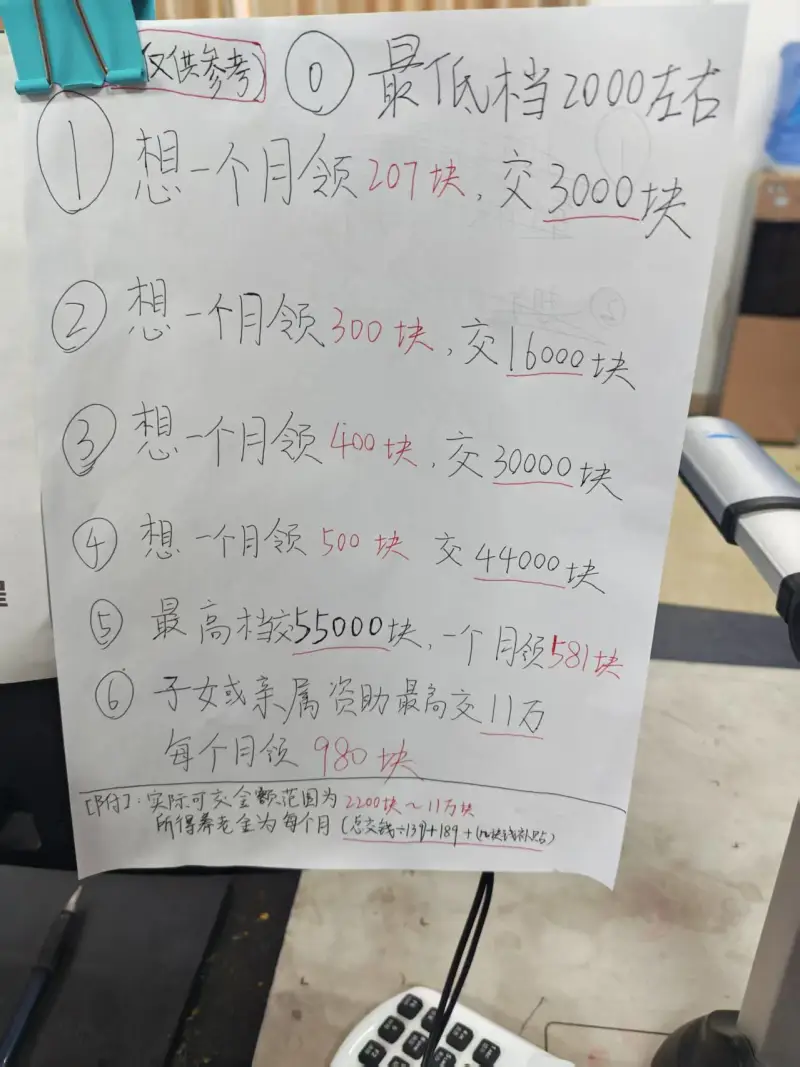 仅供参考)
⓪ 最低档2000左右
① 想一个月领207块,交3000块
② 想一个月领300块,交16000块
③ 想一个月领400块,交30000块
④ 想一个月领500块 交44000块
⑤ 最高档交55000块,一个月领581块
⑥ 子女或亲属资助最高交11万
每个月领 980块
[附]:实际可交金额范围为2200块~11万块
所得养老金为每个月(总交钱÷139)+189+(几块钱补贴)